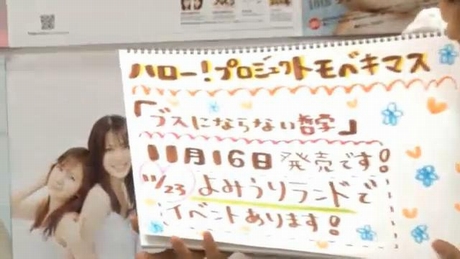 ハロー!プロジェクトモベキマス
「ブスにならない哲学」
11月16日発売です!
11/23よみうりランドで
イベントあります!